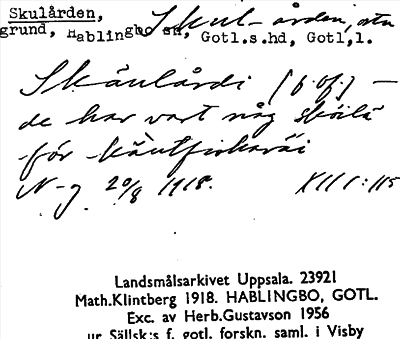 Skulården, Skul-ården, utu
grund, Hablingbo sn, Gotl.s.hd, Gotl,l.
Skäulårdi (b. of.) —
de har vart någ skäilä
för käutfiskaräi
N-g 20/8 1918. XIII 1:115
Landsmålsarkivet Uppsala. 23921
Math.Klintberg 1918. HABLINGBO, GOTL.
Exc. av Herb.Gustavson 1956
ur Sällsk:s f. gotl. forskn. saml. i Visby